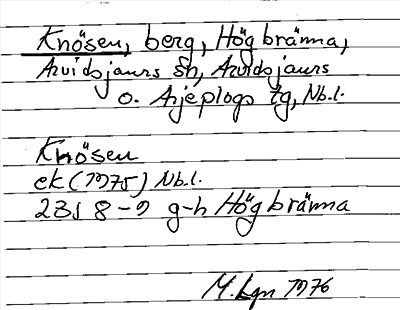 Knösen, berg, Högbränna,
Arvidsjaurs sn, Arvidsjaurs
o. Arjeplogs tg, Nb.l.
Knösen
ek (1975) Nb.l.
23J 8-9 g-h Högbränna
M. Lgn 1976